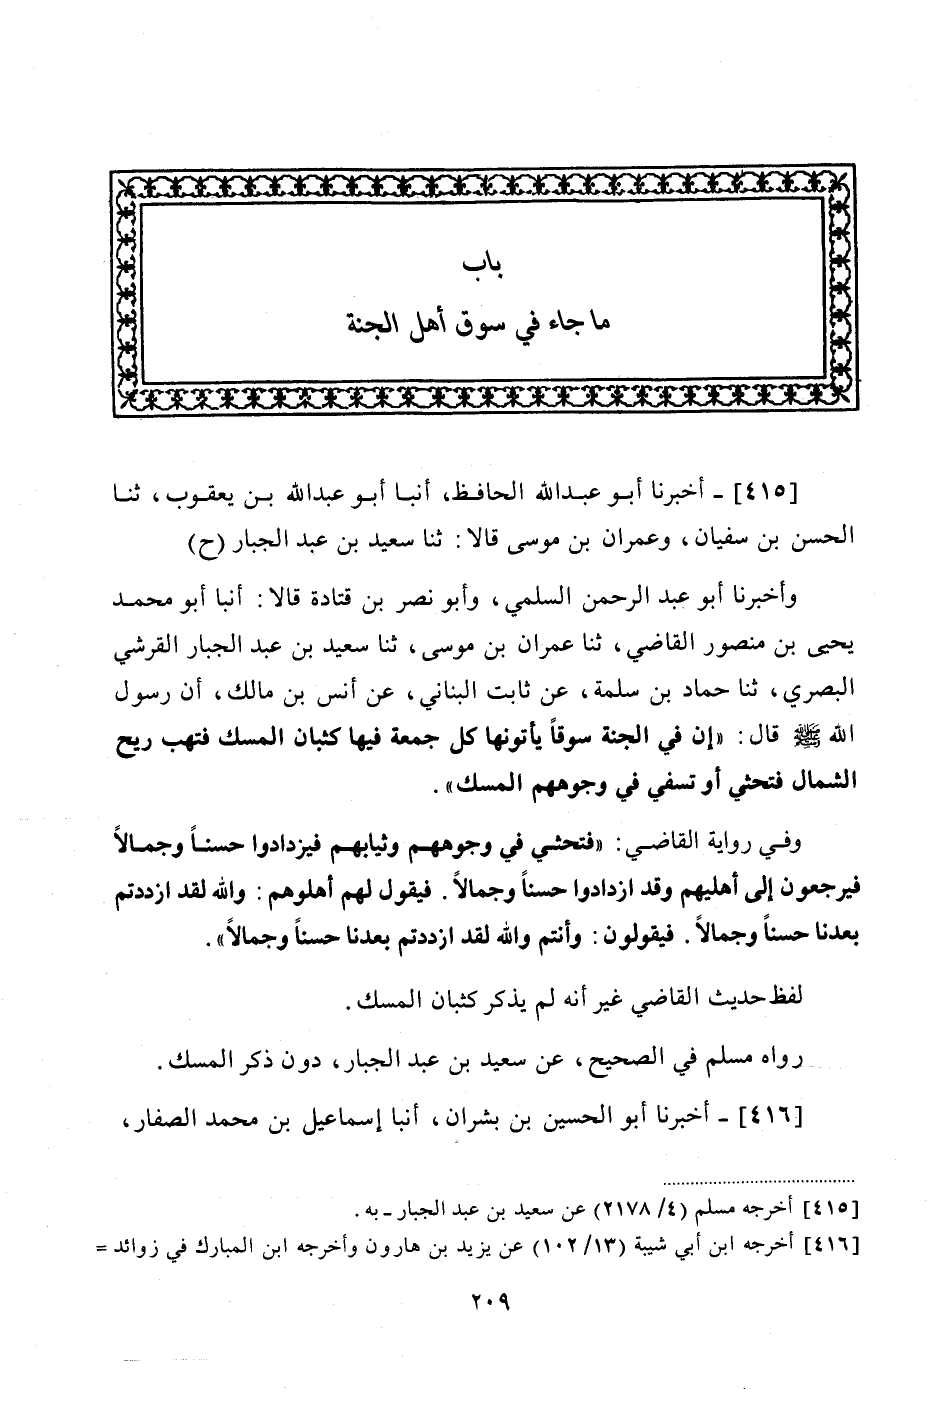 باب
ما جاء في سوق أهل الجنة
[٤١٥] ـ أخبرنا أبو عبدالله الحافظ، أنبا أبو عبدالله بن يعقوب، ثنا
الحسن بن سفيان، وعمران بن موسى قالا: ثنا سعيد بن عبد الجبار (ح)
وأخبرنا أبو عبد الرحمن السلمي، وأبو نصر بن قتادة قالا: أنبا أبو محمد
يحيى بن منصور القاضي، ثنا عمران بن موسى، ثنا سعيد بن عبد الجبار القرشي
البصري، ثنا حماد بن سلمة، عن ثابت البناني، عن أنس بن مالك، أن رسول
الله ﷺ قال: «إن في الجنة سوقاً يأتونها كل جمعة فيها كثبان المسك فتهب ريح
الشمال فتحثي أو تسفي في وجوههم المسك».
وفي رواية القاضي: «فتحثي في وجوههم وثيابهم فيزدادوا حسناً وجمالاً
فيرجعون إلى أهليهم وقد ازدادوا حسناً وجمالاً. فيقول لهم أهلوهم: والله لقد ازددتم
بعدنا حسناً وجمالاً. فيقولون: وأنتم والله لقد ازددتم بعدنا حسناً وجمالاً».
لفظ حديث القاضي غير أنه لم يذكر كثبان المسك.
رواه مسلم في الصحيح، عن سعيد بن عبد الجبار، دون ذكر المسك.
[٤١٦] ـ أخبرنا أبو الحسين بن بشران، أنبا إسماعيل بن محمد الصفار،
[٤١٥] أخرجه مسلم (٤/ ٢١٧٨) عن سعيد بن عبد الجبار ـ به.
[٤١٦] أخرجه ابن أبي شيبة (١٣/ ١٠٢) عن يزيد بن هارون وأخرجه ابن المبارك في زوائد =
٢٠٩